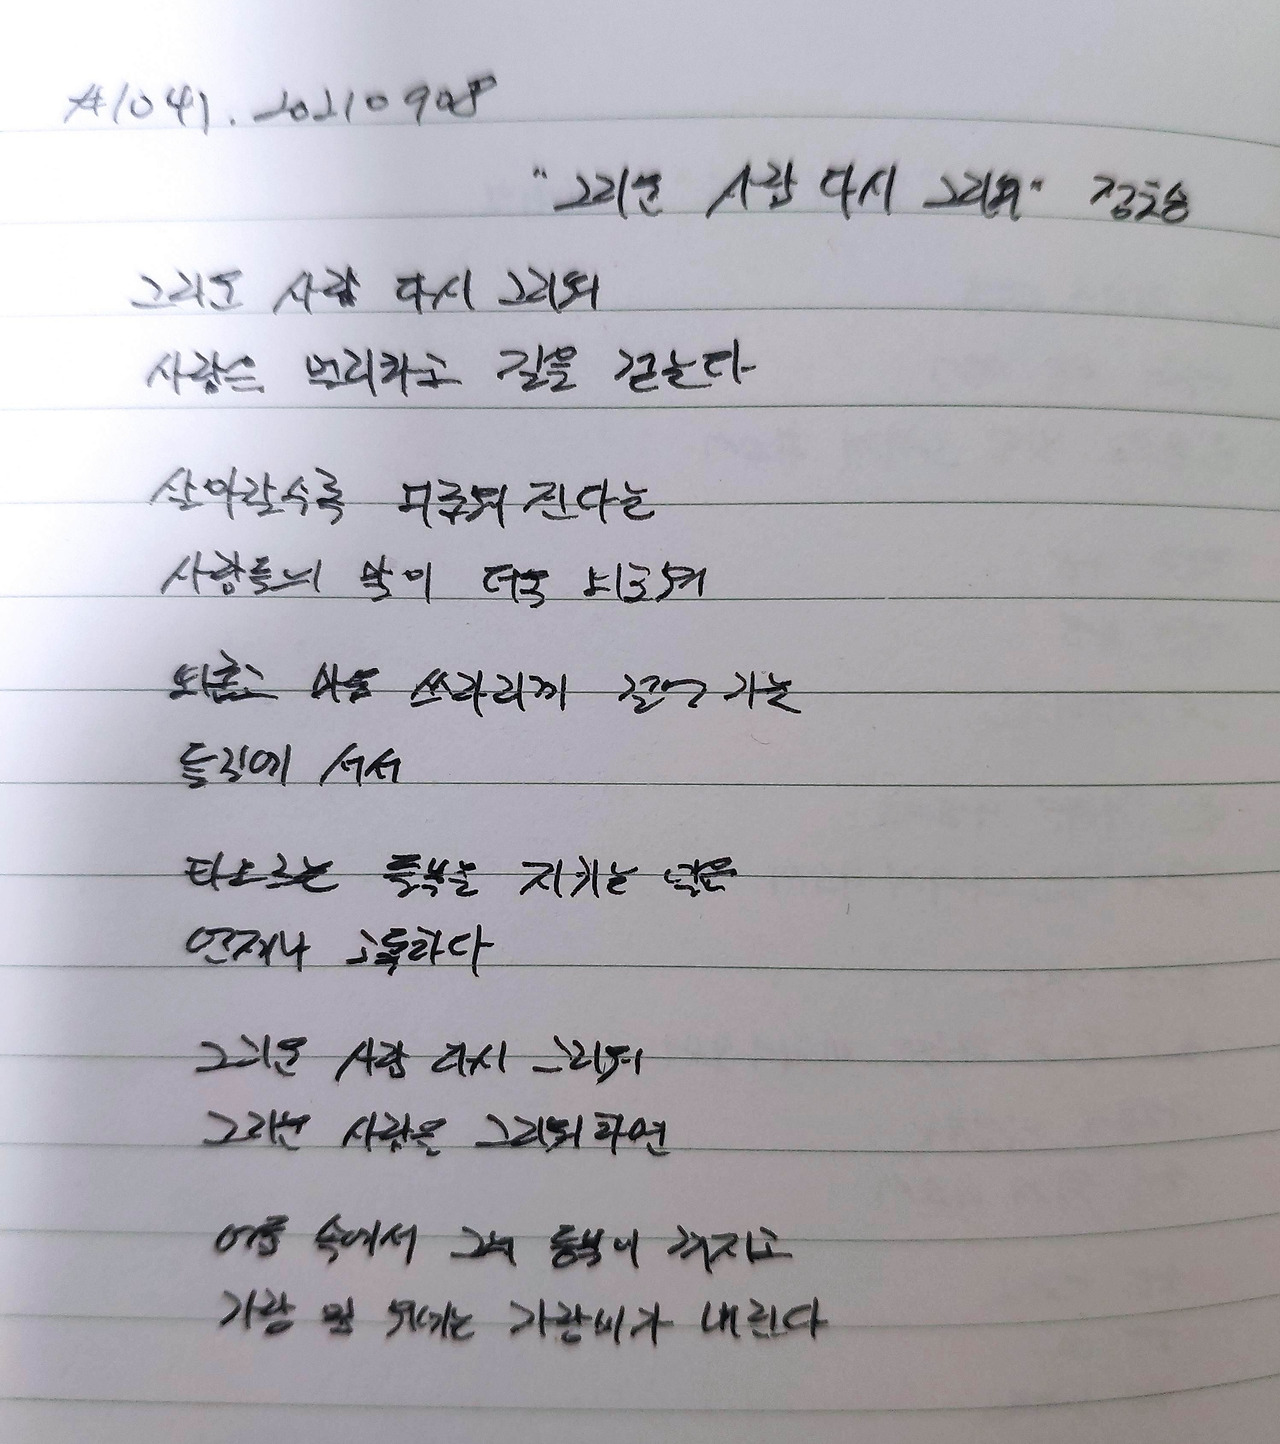 #1041. 20210908
"그리운 사람 다시 그리워" 정호승
그리운 사람 다시 그리워
사람을 멀리하고 길을 걷는다
살아갈수록 외로워진다는
사람들의 말이 더욱 외로워
외롭고 마음 쓰라리게 걸어가는
들길에 서서
타오르는 들불을 지키는 일은
언제나 고독하다
그리운 사람 다시 그리워
그리운 사람을 그리워하면
어둠 속에서 그의 등불이 꺼지고
가랑잎 위에는 가랑비가 내린다